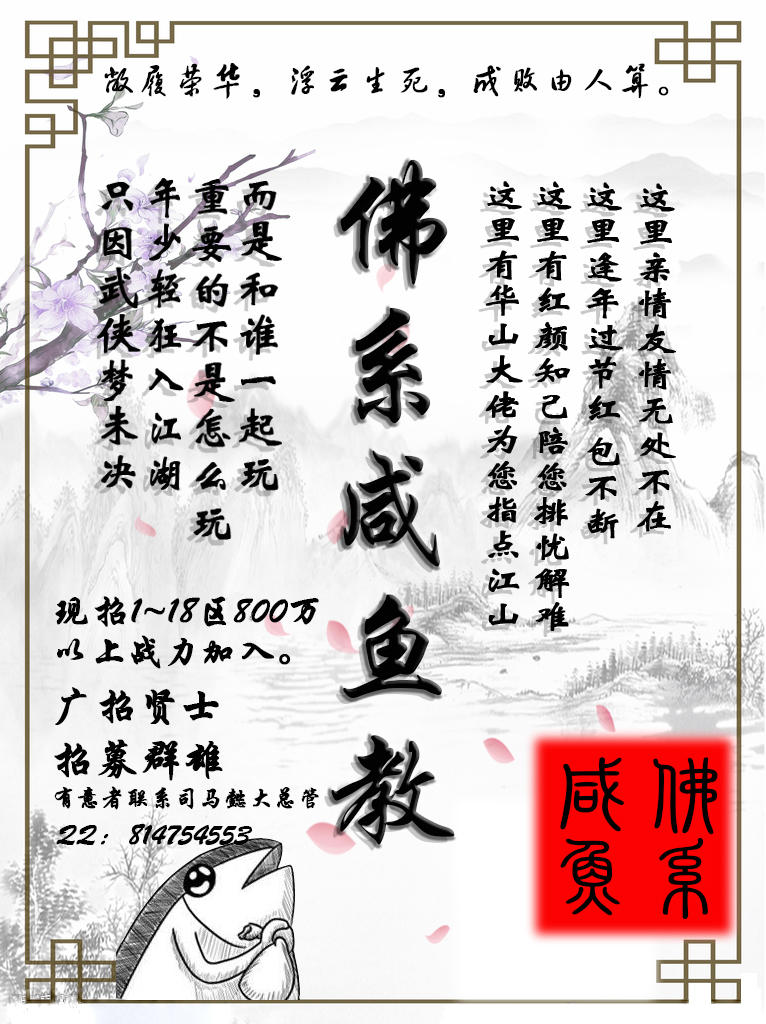 敝履荣华，浮云生死，成败由人算。
佛系咸鱼教
这里亲情友情无处不在
这里逢年过节红包不断
这里有红颜知己陪您排忧解难
这里有华山大佬为您指点江山
只因武侠梦未决
年少轻狂入江湖
重要的不是怎么玩
而是和谁一起玩
现招1~18区800万
以上战力加入。
广招贤士
招募群雄
有意者联系司马懿大总管
QQ：814754553
佛系
咸鱼